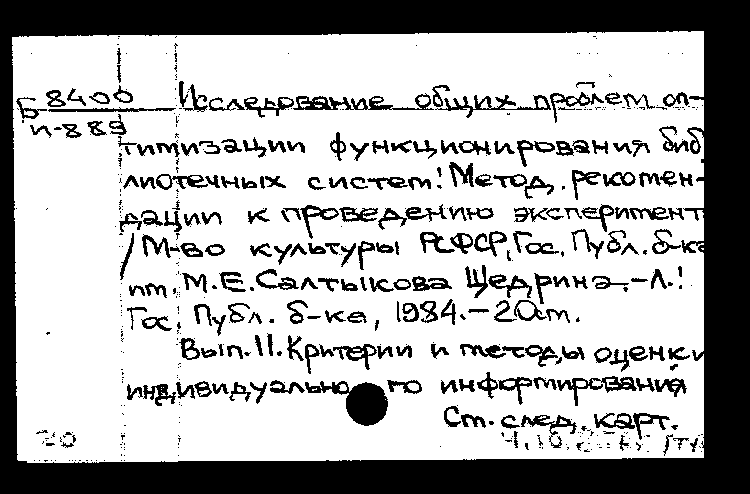 Б 8400
И-889
Исследование общих проблем оп-
тимизации функционирования биб
лиотечных систем: Метод. рекомен-
дации к проведению эксперимент
/ М-во культуры РСФСР, Гос. Публ. б-ка
им. М.Е. Салтыкова Щедрина.-Л.:
Гос. Публ. б-ка, 1984.-20см.
Вып. 11. Критерии и методы оценки
индивидуально го информирования
См. след. карт.
20